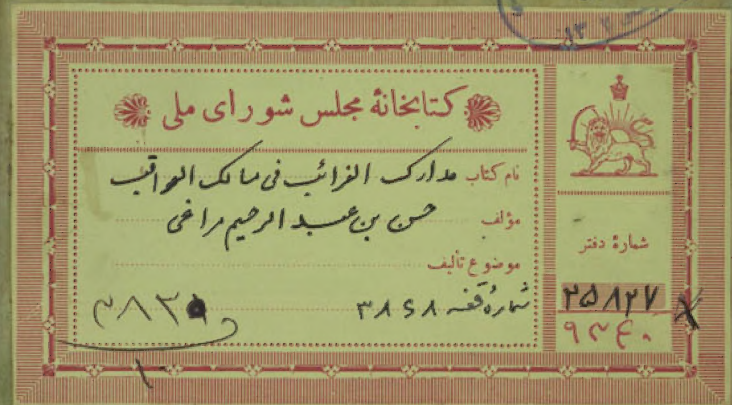 کتابخانهٔ مجلس شورای ملی
نام کتاب مدارک الغرائب فی مسالک العواقب
مؤلف حسن بن عبد الرحیم مراغی
موضوع تألیف
شمارهٔ قفسه ۳۸۶۸
شمارهٔ دفتر
۲۵۸۲۷
۹۳۴۰
۱۰